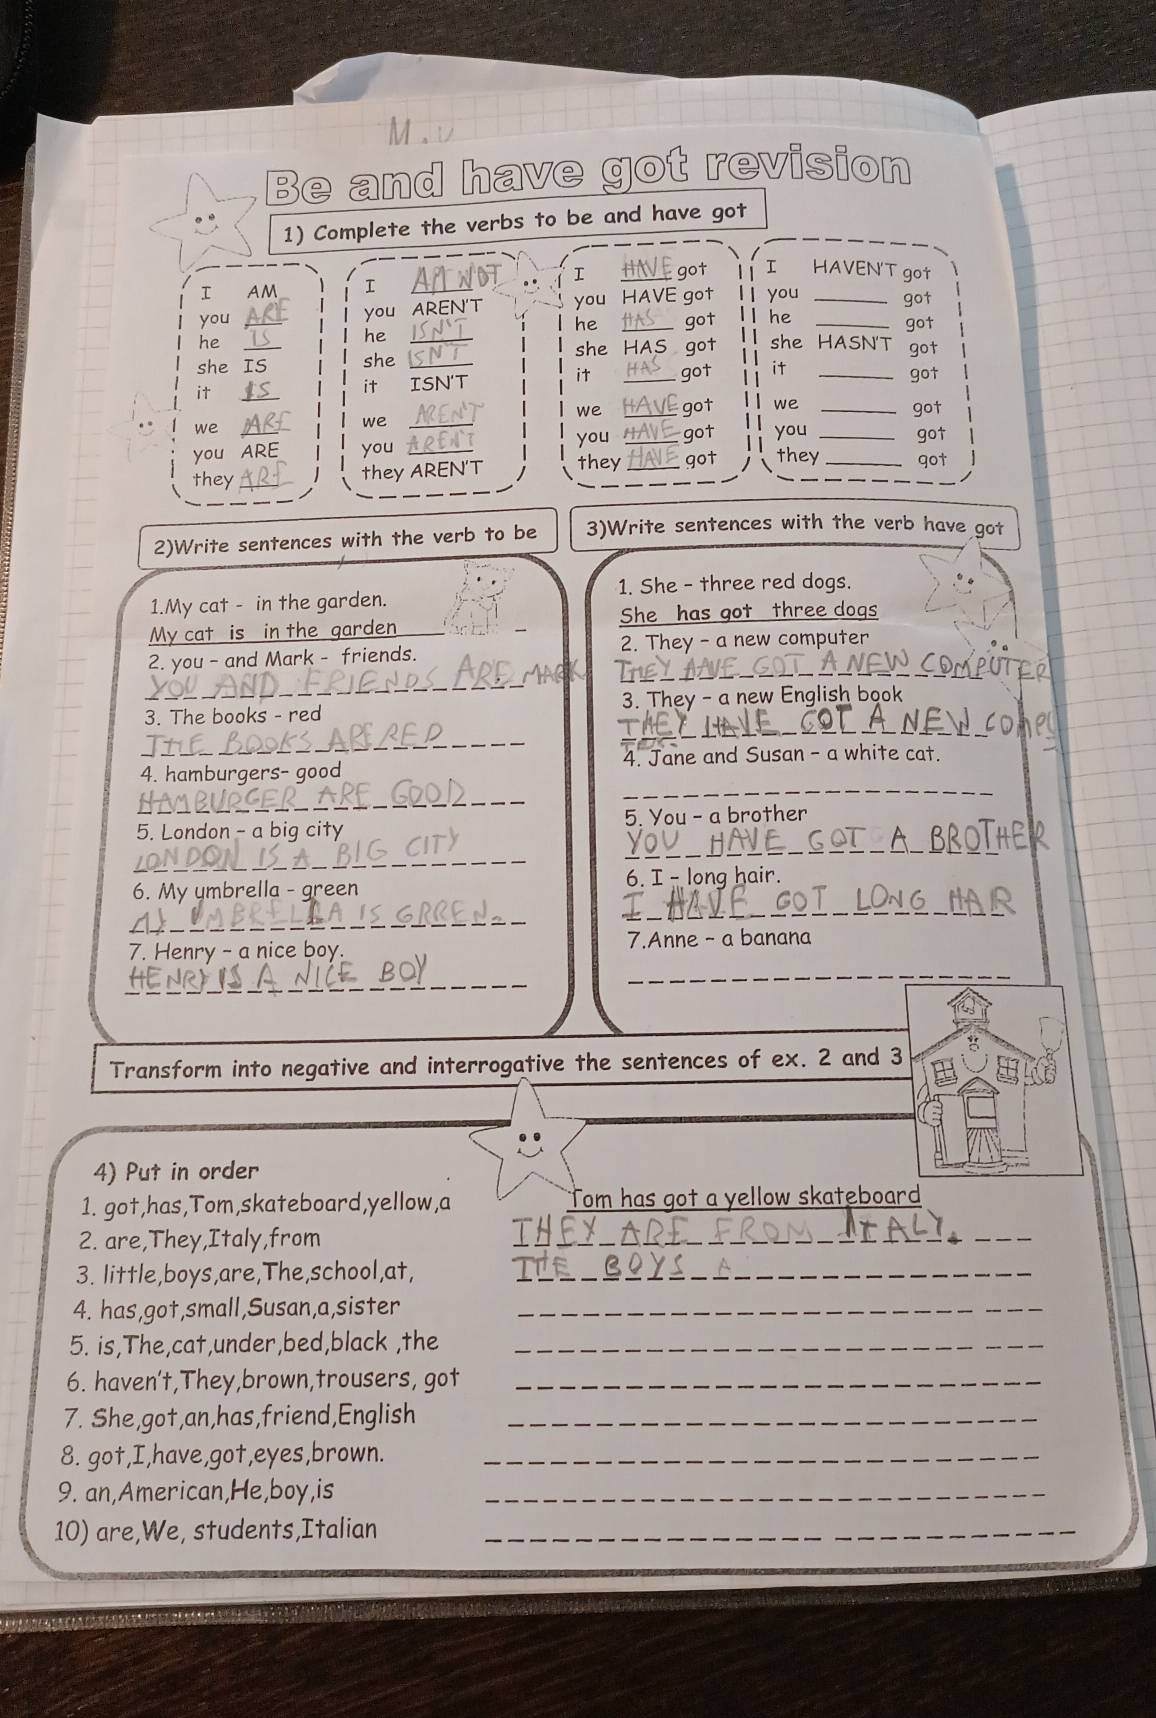 Be and have got revision
1) Complete the verbs to be and have got
I AM
you ARE
he IS
she IS
it IS
we ARE
you ARE
they ARE
I AM NOT
you AREN'T
he ISN'T
she ISN'T
it ISN'T
we AREN'T
you AREN'T
they AREN'T
I HAVE got
you HAVE got
he HAS got
she HAS got
it HAS got
we HAVE got
you HAVE got
they HAVE got
I HAVEN'T got
you ______ got
he ______ got
she HASN'T got
it ______ got
we ______ got
you ______ got
they ______ got
2)Write sentences with the verb to be
1.My cat - in the garden.
My cat is in the garden
2. you - and Mark - friends.
YOU AND FRIENDS ARE MARK
3. The books - red
THE BOOKS ARE RED
4. hamburgers- good
HAMBURGER ARE GOOD
5. London - a big city
LONDON IS A BIG CITY
6. My umbrella - green
MY UMBRELLA IS GRREN
7. Henry - a nice boy.
HENRY IS A NICE BOY
3)Write sentences with the verb have got
1. She - three red dogs.
She has got three dogs
2. They - a new computer
THEY HAVE GOT A NEW COMPUTER
3. They - a new English book
THEY HAVE GOT A NEW
4. Jane and Susan - a white cat.
5. You - a brother
YOU HAVE GOT A BROTHER
6. I - long hair.
I HAVE GOT LONG HAR
7.Anne - a banana
Transform into negative and interrogative the sentences of ex. 2 and 3
4) Put in order
1. got,has,Tom,skateboard,yellow,a Tom has got a yellow skateboard
2. are,They,Italy,from THEY ARE FROM ITALY.
3. little,boys,are,The,school,at, THE BOYS A
4. has,got,small,Susan,a,sister
5. is,The,cat,under,bed,black ,the
6. haven't,They,brown,trousers, got
7. She,got,an,has,friend,English
8. got,I,have,got,eyes,brown.
9. an,American,He,boy,is
10) are,We, students,Italian